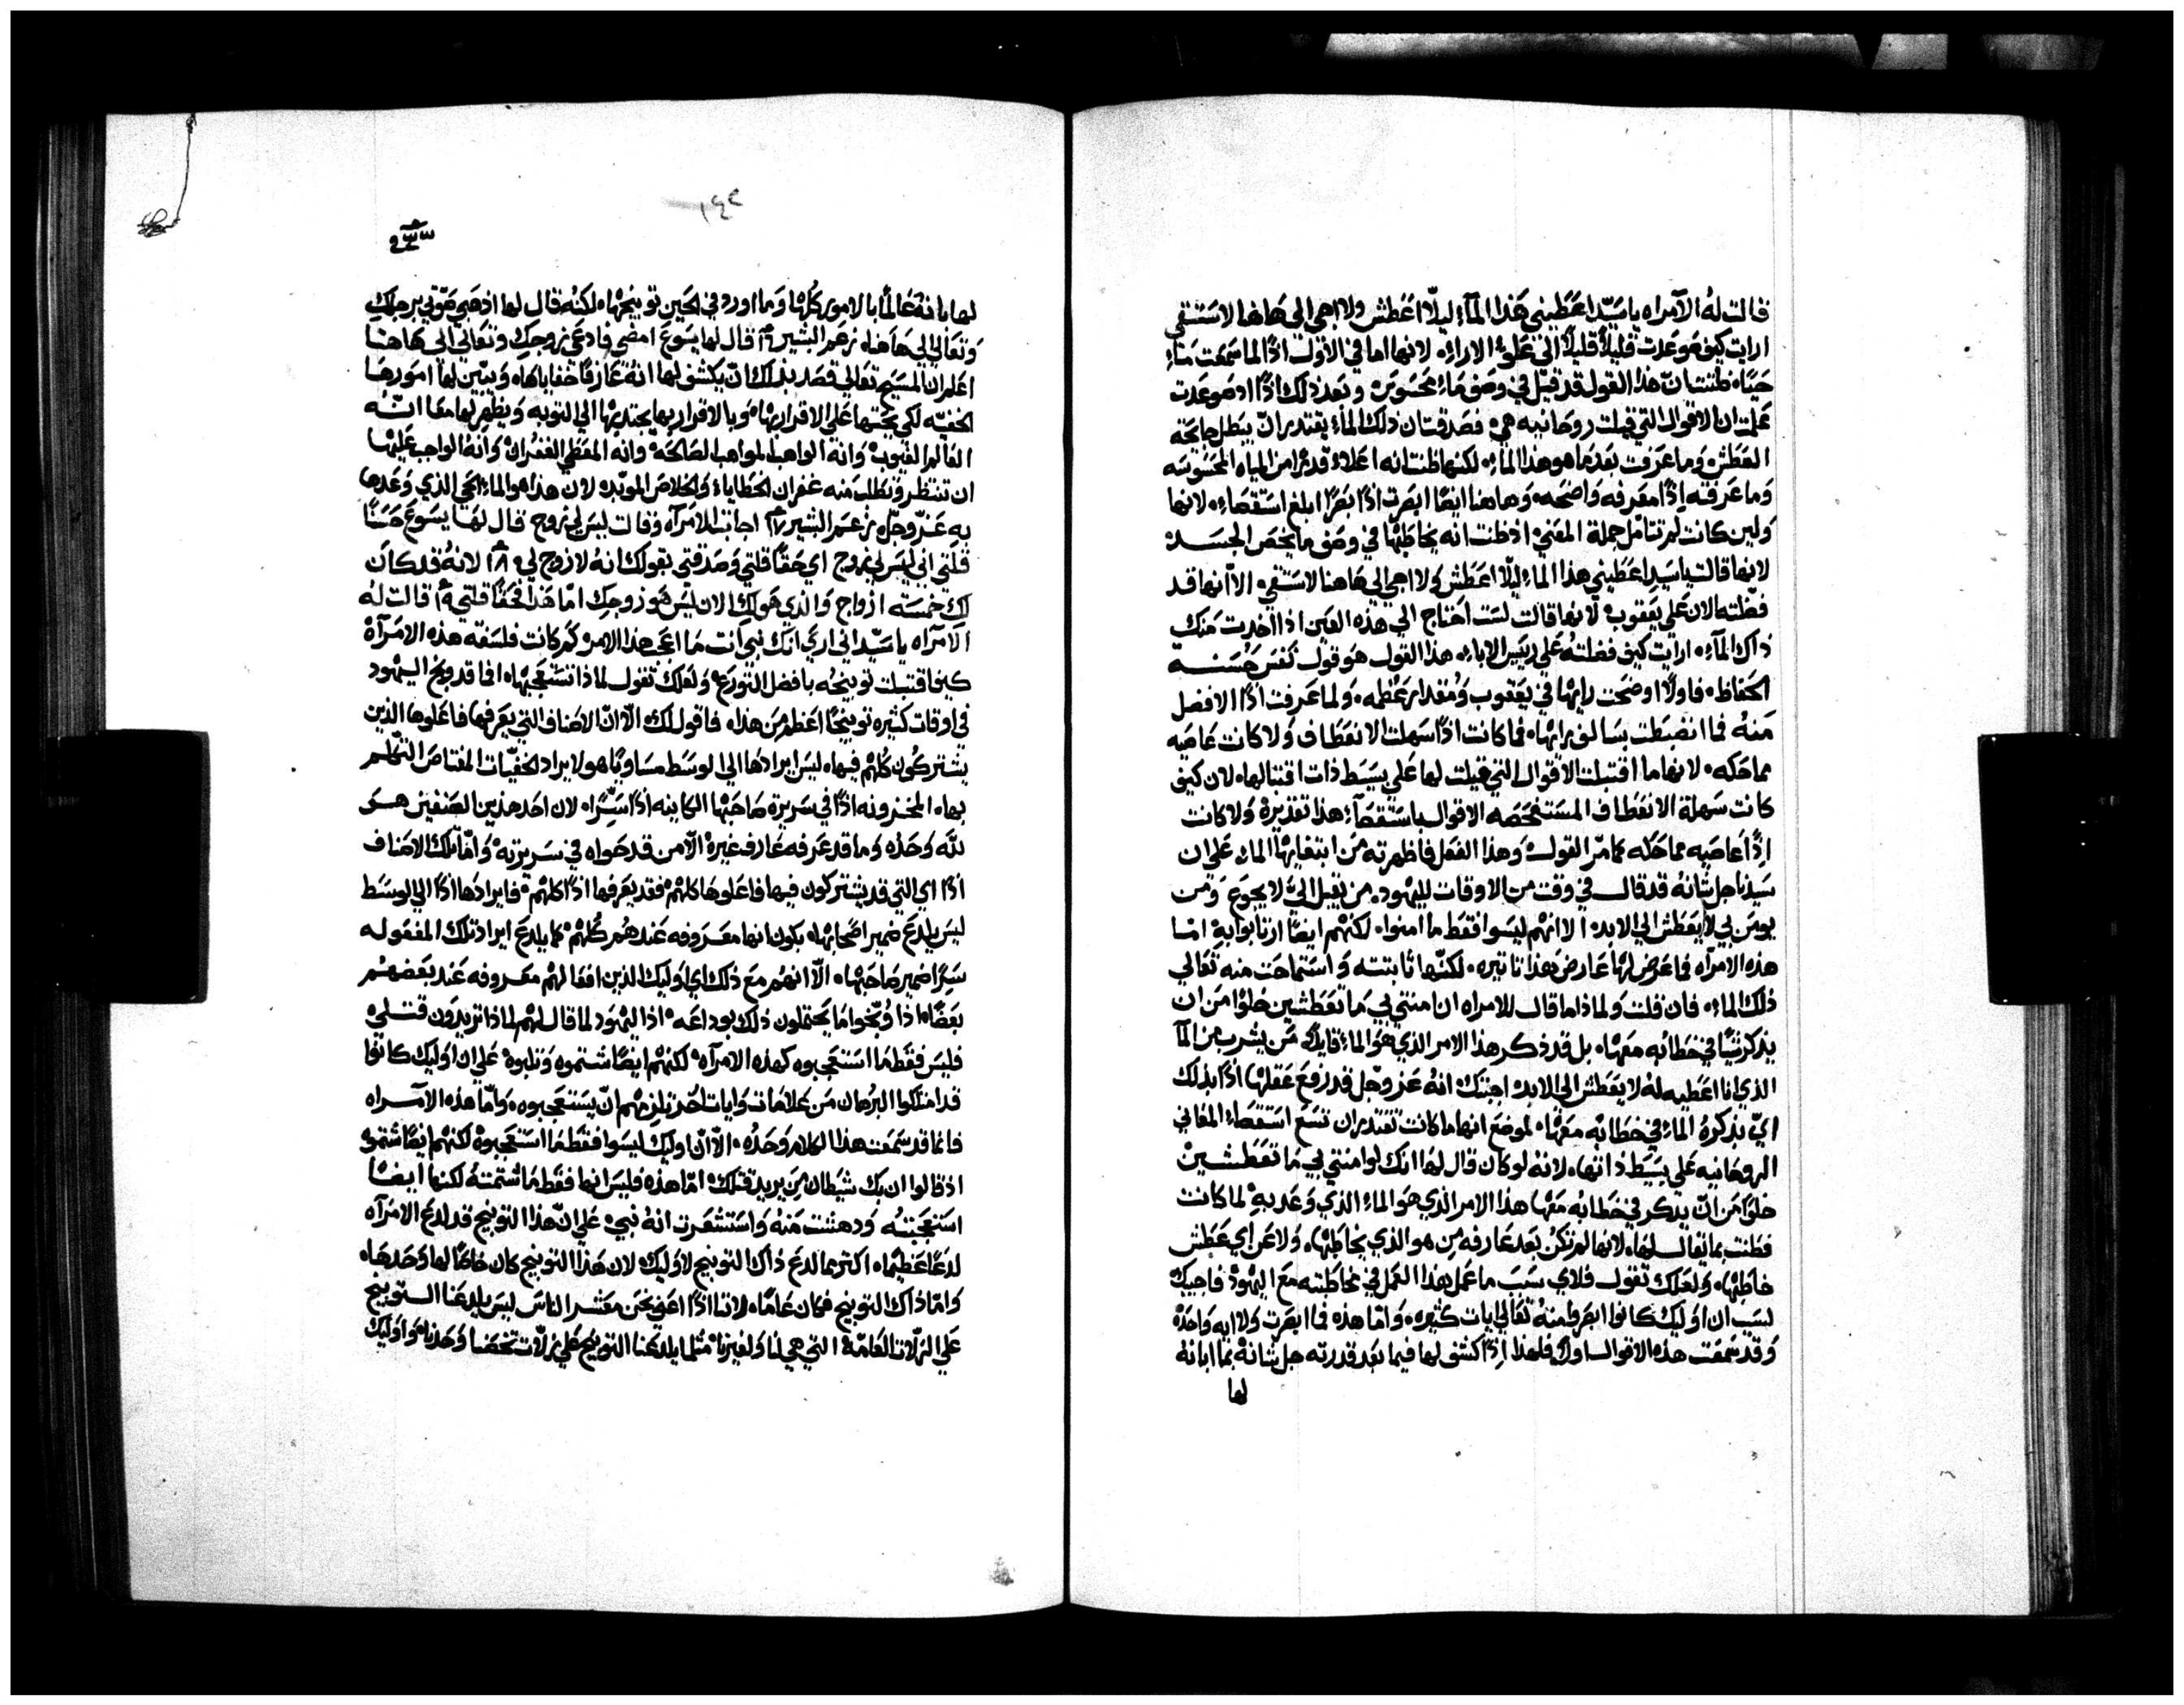 قالت له الآمراه يا سيّد اعطيني هذا المآء ليلّا اعطش ولا اجي الى هاهنا لاستقي
ارايت كيف صوعدت قليلاً قليلاً الى علوّ الاراء، لانها اما في الاول اذًا لما سمعت ماء
حيًا، ظنت ان هذا القول قد قيل في وصف ماء محسوس، وبعد ذلك اذًا اد صوعدت
علمت ان الاقوال التي قيلت روحانيه هي، فصدقت ان ذلك الماء يقتدر ان يبطل حاجة
العطش، وما عرفت بعد ما هو هذا الماء، لكنها ظنت انه اعلاء قدرًا من المياه المحسوسه
وما عرفته اذًا معرفه واضحه، وهاهنا ايضًا ابصرت اذًا بصرًا ابلغ استقصاء، لانها
ولين كانت لم تتامل جملة المعني، اذ ظنت انه يخاطبها في وصف ما يخص الجسد
لانها قالت يا سيد اعطيني هذا الماء ليلّا اعطش ولا اجي الى هاهنا لاستقي، الّا انها قد
فضّلته الان على يعقوب، لانها قالت لست احتاج الي هذه العين اذا اخدت منك
ذاك المآء، ارايت كيف فضلته على رييس الاباء، هذا القول هو قول نفس حسنة
الحفاظ، فاولًا اوضحت رايها في يعقوب ومقدار عظمه، ولما عرفت اذًا الافضل
منه فما انضبطت بسالف رايها، فما كانت اذًا سهلت الانعطاف ولا كانت عاصيه
مماحكه، لانها ما اقتبلت الاقوال التي قيلت لها على بسيط ذات اقتبالها، لان كيف
كانت سهلة الانعطاف المستفحصه الاقوال باستقصآء هذا تقديره، ولا كانت
اذًا عاصيه مماحكه كما مرّ القول، وهذا الفعل فاظهرته من ابتغايها الماء، على ان
سيدنا جل شانه قد قال في وقت من الاوقات لليهود، من يقبل اليّ لا يجوع ومن
يومن بي لا يعطش الى الابد، الا انهم ليسوا فقط ما امنوا، لكنهم ايضًا ارتابوا به، امّا
هذه الامرآه فما عرض لها عارض هذا تاتيره، لكنّها ثابتته واستماحت منه تعالي
ذلك الماء، فان قلت ولماذا ما قال للامراه ان امنتي بي ما تعطشين خلوًا من ان
يذكر شيًا في خطابه معها، بل قد ذكر هذا الامر الذي هو الماء قايلًا، من يشرب من المآ
الذي انا اعطيه له لا يعطش الى الابد، اجبتك انه عز وجل قد رفع عقلها اذًا بذلك
اي بذكره الماء في خطابه معها، لموضع انها ما كانت تقتدر ان تسع استقصاء المعاني
الروحانيه على بسيط ذاتها، لانه لو كان قال لها انك لو امنتي بي ما تعطشين
خلوًا من ان يدكر في خطابه معها هذا الامر الذي هو الماء الذي وعد به، لما كانت
فطنت بما يقال لها، لانها لم تكن بعد عارفه من هو الذي يخاطبها، ولا عن اي عطش
خاطبها، ولعلك تقول فلاي سبب ما عمل هذا العمل في مخاطبته مع اليهود، فاجيبك
لسبب ان اوليك كانوا ابصروا منه تعالي ايات كثيره، وامّا هذه فما ابصرت ولا ايه واحده
وقد سمعت هذه الاقوال اولًا، فلهذا اذًا كشف لها فيما بعد قدرته جل شانه بما ابانه
لها
١٤٢
لها بانه عالمًا بالامور كلها، وما اورد في الحين توبيخها، لكنه قال لها اذهبي صوّتي برجلك
وتعالي الى هاهنا، زعم البشير ١٦ قال لها يسوع امضي فادعي زوجك وتعالي الى هاهنا
اعلم ان المسيح تعالي قصد بذلك انّ يكشف لها انه عارفًا خفاياها، ويبيّن لها امورها
الخفيّه، لكي يحتها على الاقرار بها، وبالاقرار بها يجتدبها الي التوبه، ويظهر لها معًا انّه
العالم الغيوب، وانه الواهب المواهب الصالحة، وانه المعطي الغفران، وانه الواجب عليها
ان تنتظر وتطلب منه غفران الخطايا، والخلاص الموبّد، لان هذا هو الماء الحي الذي وعدها
به عزّ وجلّ، زعم البشير ١٧ اجابت الامرآه وقالت ليس لي زوج، قال لها يسوع حسنًا
قلتي اني ليس لي زوج، اي حقًا قلتي وصدقتي بقولك انه لا زوج لي، ١٨ لانه قد كان
لك خمسة ازواج، والذي هو لك الان ليس هو زوجك، امّا هذا فحقًا قلتي، ١٩ قالت له
الامرآه يا سيّد اني اري انك نبي انت، ما اعجب هذا الامر، كم كانت فلسفة هذه الامرآة
كيف اقتبلت توبيخه بافضل التورّع، ولعلك تقول لماذا تستعجبها، افما قد وبّخ اليهود
في اوقات كثيره توبيخًا اعظم من هذا، فاقول لك الّا انّ الاصناف التي يعرفها فاعلوها الذين
يشتركون كلهم فيها، ليس ايرادها الي الوسط مساويًا هو لايراد الخفيّات المعتاص التكلم
بها، المخزونه اذًا في سريرة صاحبها الكاينه اذًا سرًّا، لان احد هذين الصنفين هو
لله وحده، وما قد عرفه عارف غيره، الّا من قد حواه في سريرته، وامّا تلك الاصناف
اذًا اي التي قد يشتركون فيها فاعلوها كلهم، فقد يعرفها اذًا كلهم، فايرادها اذًا الي الوسط
ليس يلدع ضمير اصحابها، بكون انها معروفه عندهم كلهم، كما يلدع ايراد تلك المفعوله
سرًا ضمير صاحبها، الّا انهم مع ذلك اي اوليك الذين افعالهم معروفه عند بعضهم
بعضًا، اذا وبّخوا ما يحتملون ذلك بوداعه، اذ اليهود لما قال لهم لماذا تريدون قتلي
فليس فقط ما استعجبوه كهذه الامرآه، لكنهم ايضًا شتموه وثلبوه، على ان اوليك كانوا
قد امتلكوا البرهان من علامات وايات اُخر، تلزمهم انّ يستعجبوه، وامّا هذه الامراه
فانما قد سمعت هذا الكلام وحده، الّا انّ اوليك ليسوا فقط ما استعجبوه لكنهم ايضًا شتموه
اذ قالوا ان بك شيطان من يريد قتلك، امّا هذه فليس انها فقط ما شتمته لكنها ايضًا
استعجبته ودهشت منه واستشعرت انه نبي، على انّ هذا التوبيخ قد لدع الامرآه
لدعًا عظيمًا، اكثر مما لدع ذاك التوبيخ لاوليك، لان هذا التوبيخ كان خاصًا لها وحدها،
وامّا ذاك التوبيخ فكان عامًا، لاننا اذًا اعني نحن معشر الناس ليس يلدعنا التوبيخ
على الزلات العامّة، التي هي لنا ولغيرنا، مثلما يلدعنا التوبيخ على زلّات تخصنا وحدنا، واوليك